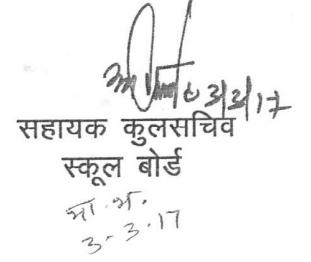 3/3/17
सहायक कुलसचिव
स्कूल बोर्ड
भा.भ.
3-3.17